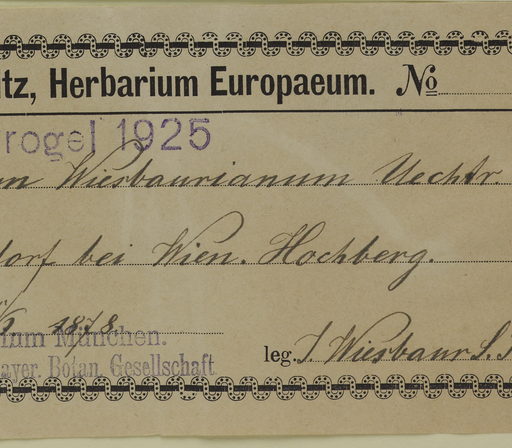 tz, Herbarium Europaeum. No
rogel 1925
m Wiesbaurianum Uechtr.
dorf bei Wien. Hochberg.
1878
um München.
ayer. Botan. Gesellschaft
leg. J. Wiesbaur S.